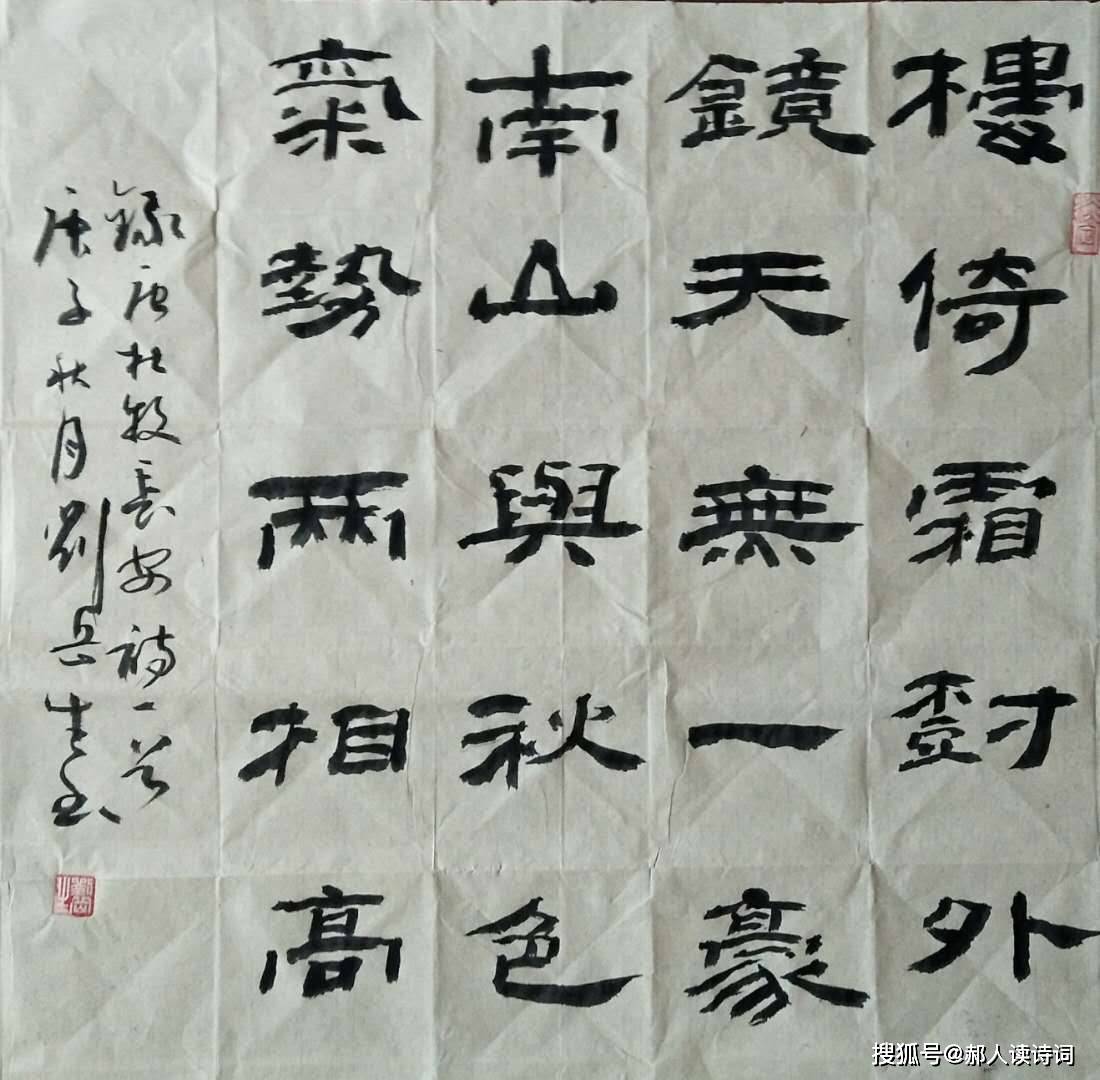 樓倚霜對外
鏡天無一豪
南山與秋色
氣勢兩相高
錄唐杜牧長安詩一首
庚子秋月劉岳生書
搜狐号@郝人读诗词